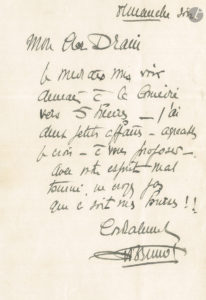 Dimanche soir
Mon cher Drain
demain à la Comédie
vers 5 heures _ j'ai
deux petites affaires _ agréables
je crois _ à vous proposer _
avec votre esprit mal
tourné, ne croyez pas
que ce soit mes fesses !!
Cordialement